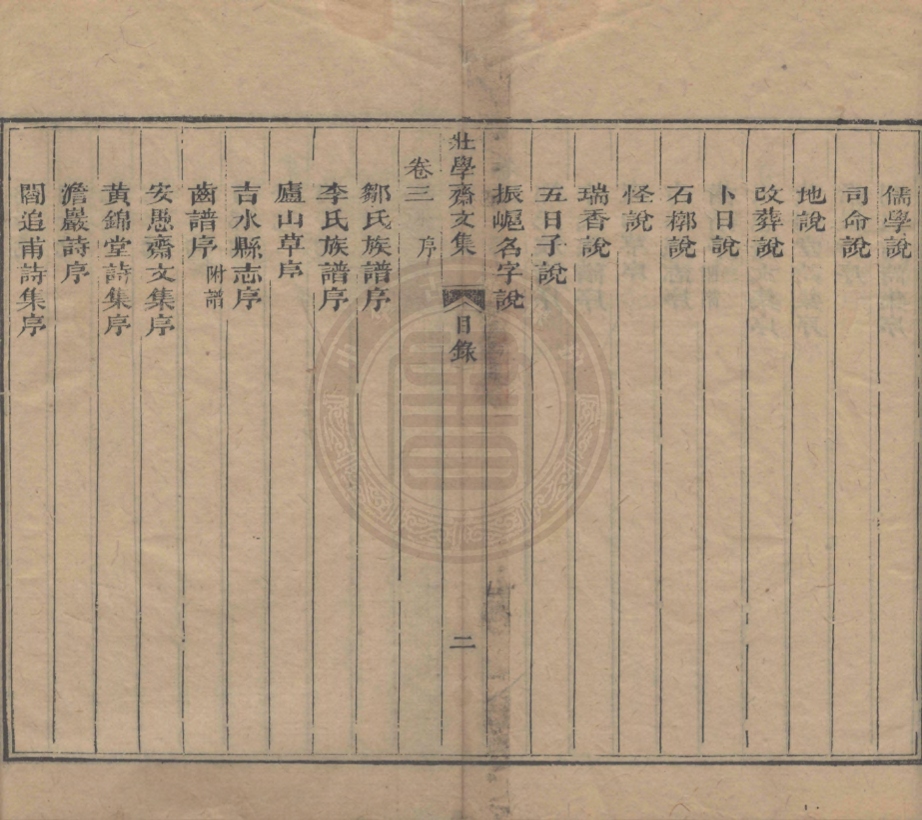 儒學說
司命說
地說
改葬說
卜日說
石槨說
怪說
瑞香說
五日子說
振嶇名字說
壯學齋文集 目錄 二
卷三 序
鄒氏族譜序
李氏族譜序
廬山草序
吉水縣志序
齒譜序 附譜
安愚齋文集序
黃錦堂詩集序
澹巖詩序
閻追甫詩集序